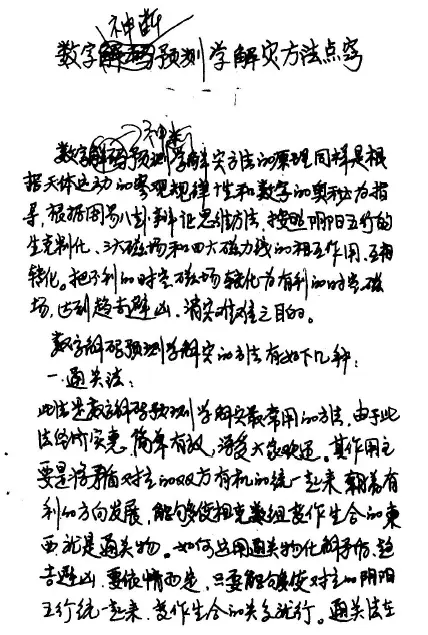 神断
数字解码预测学解灾方法点窍
神断
数字解码预测学解灾方法的原理同样是根
据天体运动的客观规律性和数字的奥秘为指
导,根据周易八卦辩证思维方法,按照阴阳五行的
生克制化、三大磁场和四大磁力线的相互作用、互相
转化。把不利的时空磁场转化为有利的时空磁
场,达到趋吉避凶、消灾难之目的。
数字解码预测学解灾的方法有如下几种:
一.通关法:
此法是数字解码预测学解灾最常用的方法,由于此
法经济实惠,简单有效,深受大家欢迎。其作用主
要是将矛盾对立的双方有机的统一起来,朝着有
利的方向发展,能够使相克组变作生合的东
西就是通关物。如何运用通关物化解矛盾,趋
吉避凶,要依情而定,只要能够使对立的阴阳
五行统一起来,变作生合的关系就行。通关法在